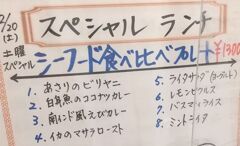 2/20
(土)
スペシャル ランチ
土曜
スペシャル
シーフード食べ比べプレート ¥1300
1. あさりのビリヤニ
2. 白身魚のココナツカレー
3. 南インド風えびカレー
4. イカのマサラロースト
5. ライタサラダ(ヨーグルト)
6. レモンピクルス
7. バスマティライス
8. ミントニイタ